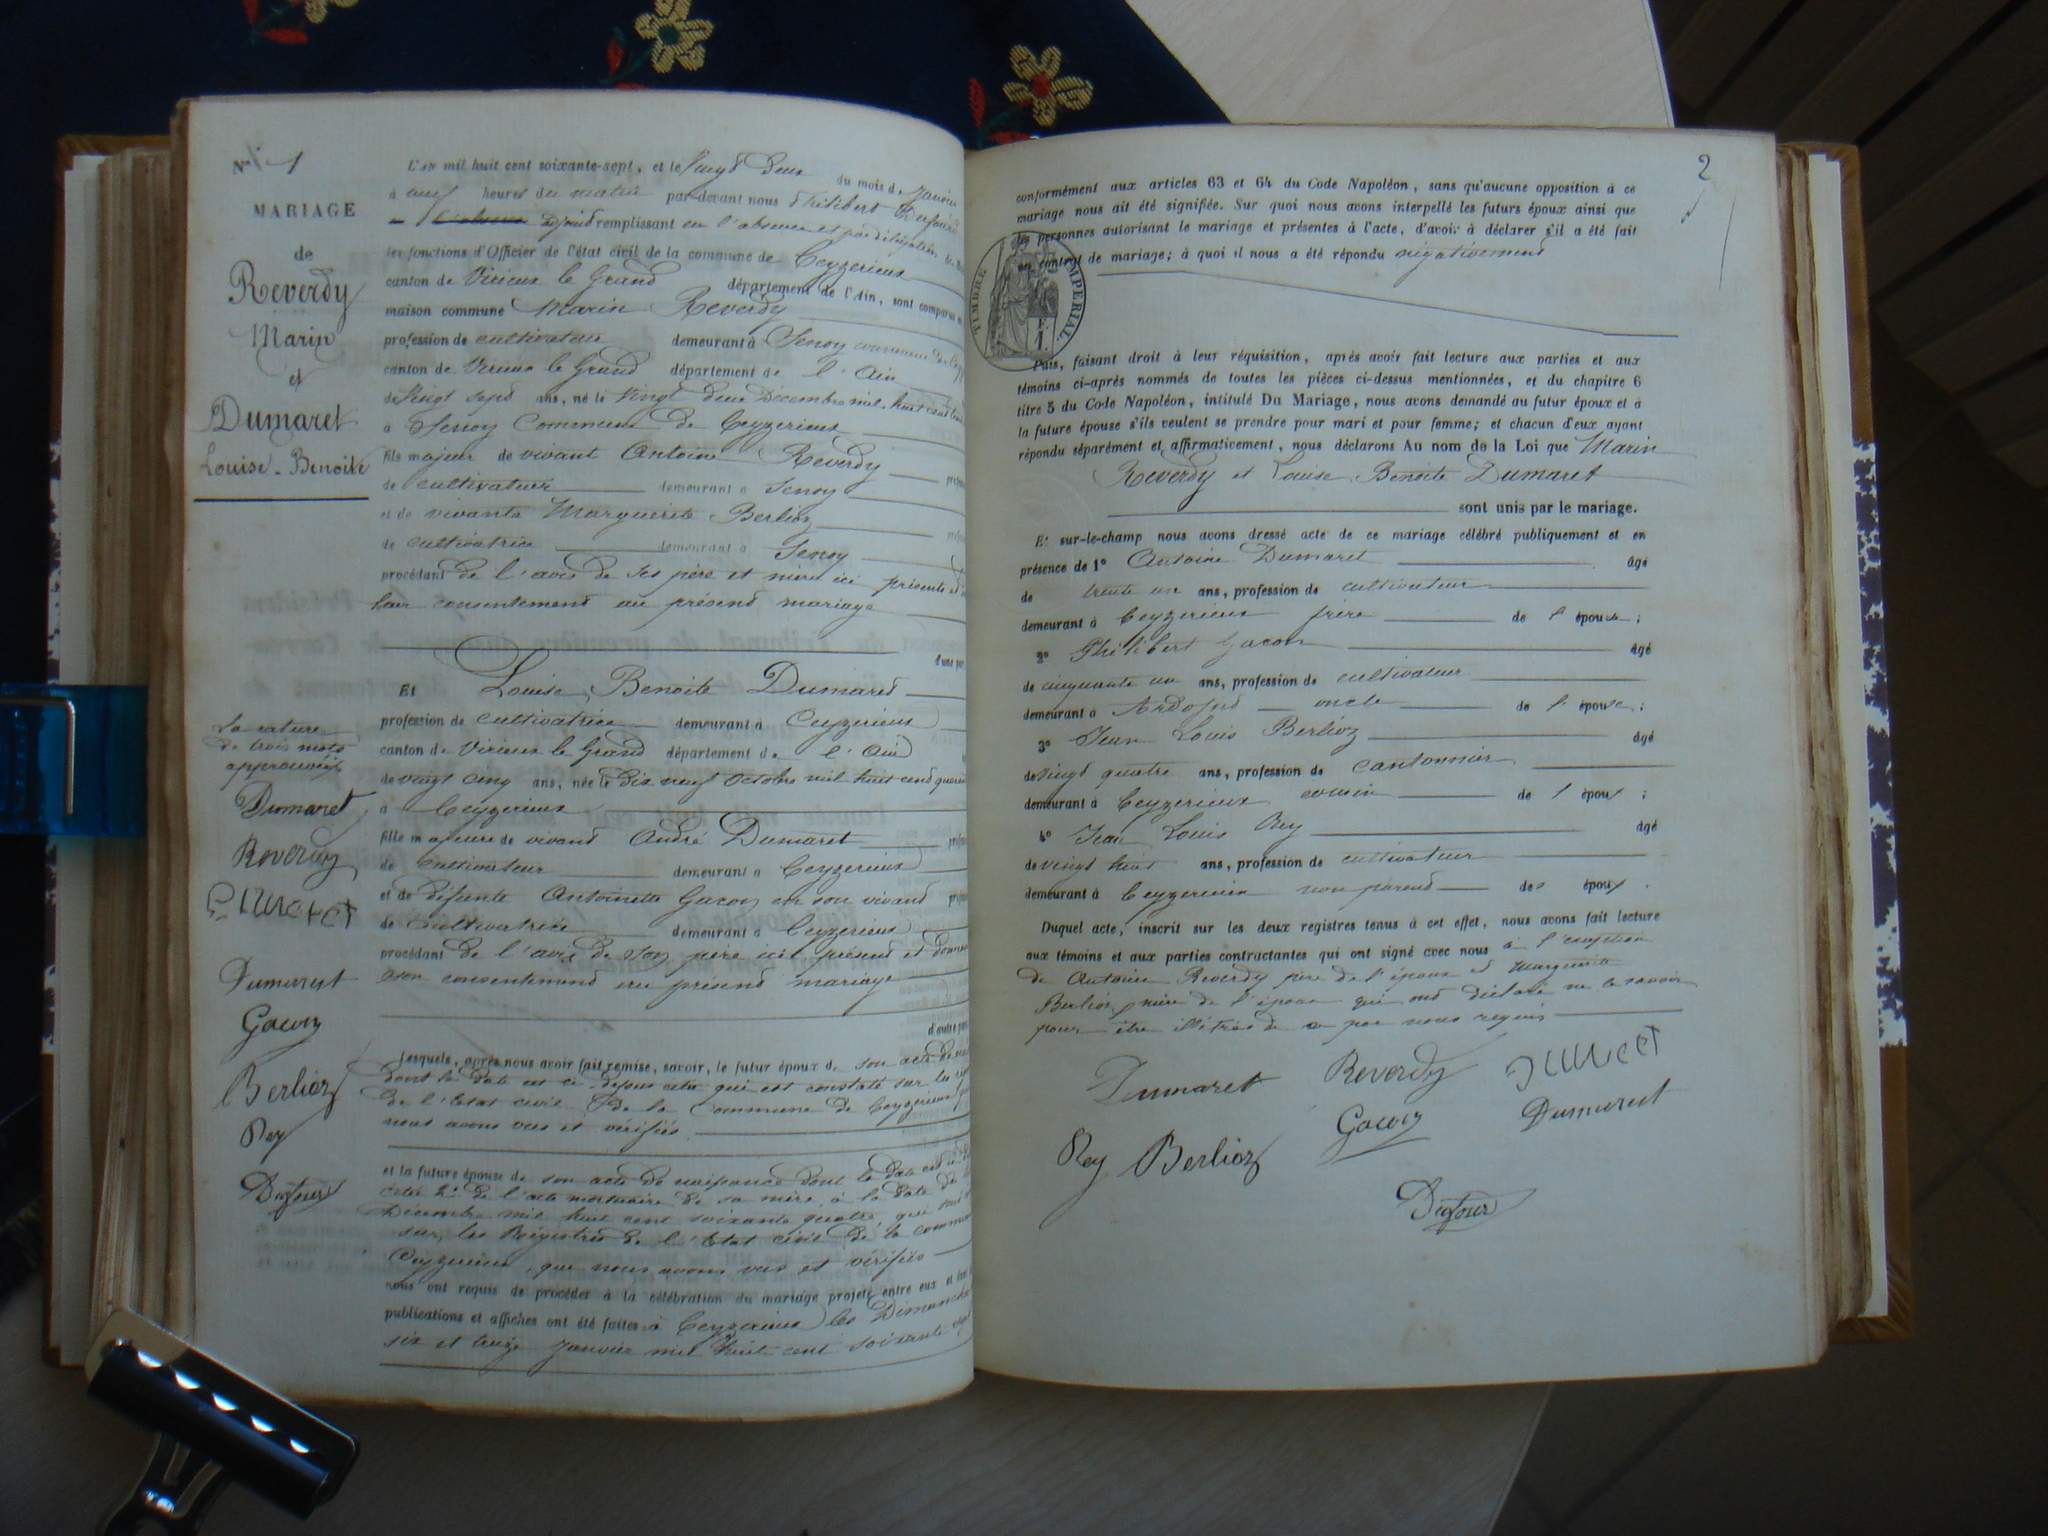 N° 1
MARIAGE
de
Reverdy
Marin
et
Dumaret
Louise-Benoite
La rature
de trois mots
approuvée
Dumaret
Reverdy
Dumaret
Gacon
Berlioz
Rey
Dufour
L'AN mil huit cent soixante-sept, et le vingt deux du mois de Janvier
à neuf heures du matin par devant nous Philibert Dufour
remplissant en l'absence et par délégation du
les fonctions d'Officier de l'état civil de la commune de Ceyzerieux
canton de Virieux le Grand département de l'Ain, sont comparus en
maison commune Marin Reverdy
profession de cultivateur demeurant à Senoy commune de
canton de Virieux le Grand département de l'Ain
de vingt sept ans, né le vingt deux Décembre mil huit cent
à Senoy Commune de Ceyzerieux
fils majeur de vivant Antoine Reverdy
de cultivateur demeurant à Senoy
et de vivante Marguerite Berlioz
de cultivatrice demeurant à Senoy
procédant de l'avis de ses père et mère ici présents et
leur consentement au présent mariage
d'une part
Et Louise Benoite Dumaret
profession de cultivatrice demeurant à Ceyzerieux
canton de Virieux le Grand département de l'Ain
de vingt cinq ans, née le dix neuf Octobre mil huit cent quaran
à Ceyzerieux
fille majeure de vivant André Dumaret
de cultivateur demeurant à Ceyzerieux
et de défunte Antoinette Gacon en son vivant
de cultivatrice demeurant à Ceyzerieux
procédant de l'avis de son père ici présent et
son consentement au présent mariage
d'autre part
lesquels, après nous avoir fait remise, savoir, le futur époux de son acte de
dont la date est ci-dessus celui qui est constaté sur les
de l'Etat civil de la Commune de Ceyzerieux
nous avons vus et vérifiés
et la future épouse de son acte de naissance dont la date est
citée 2° de l'acte mortuaire de sa mère à la date de
Décembre mil huit cent soixante quatre, qui sont
sur les Régistres de l'Etat civil de la commune
Ceyzerieux, que nous avons vus et vérifiés
nous ont requis de procéder à la célébration du mariage projeté entre eux et dont
publications et affiches ont été faites à Ceyzerieux les Dimanches
six et treize Janvier mil huit cent soixante sept
2
conformément aux articles 63 et 64 du Code Napoléon, sans qu'aucune opposition à ce
mariage nous ait été signifiée. Sur quoi nous avons interpellé les futurs époux ainsi que
les personnes autorisant le mariage et présentes à l'acte, d'avoir à déclarer s'il a été fait
un contrat de mariage; à quoi il nous a été répondu négativement
TIMBRE IMPERIAL
Puis, faisant droit à leur réquisition, après avoir fait lecture aux parties et aux
témoins ci-après nommés de toutes les pièces ci-dessus mentionnées, et du chapitre 6
titre 5 du Code Napoléon, intitulé Du Mariage, nous avons demandé au futur époux et à
la future épouse s'ils veulent se prendre pour mari et pour femme; et chacun d'eux ayant
répondu séparément et affirmativement, nous déclarons Au nom de la Loi que Marin
Reverdy et Louise Benoite Dumaret
sont unis par le mariage.
Et sur-le-champ nous avons dressé acte de ce mariage célébré publiquement et en
présence de 1° Antoine Dumaret âgé
de trente un ans, profession de cultivateur
demeurant à Ceyzerieux frère de l'épouse;
2° Philibert Gacon âgé
de cinquante un ans, profession de cultivateur
demeurant à Ardosset oncle de l'épouse;
3° Jean Louis Berlioz âgé
de vingt quatre ans, profession de cantonnier
demeurant à Ceyzerieux cousin de l'époux;
4° Jean Louis Rey âgé
de vingt huit ans, profession de cultivateur
demeurant à Ceyzerieux non parent des époux.
Duquel acte, inscrit sur les deux registres tenus à cet effet, nous avons fait lecture
aux témoins et aux parties contractantes qui ont signé avec nous à l'exception
de Antoine Reverdy père de l'époux et Marguerite
Berlioz mère de l'époux qui ont déclaré ne le savoir
pour être illétrés de ce par nous requis
Dumaret Reverdy
Rey Berlioz Gacon Dumaret
Dufour